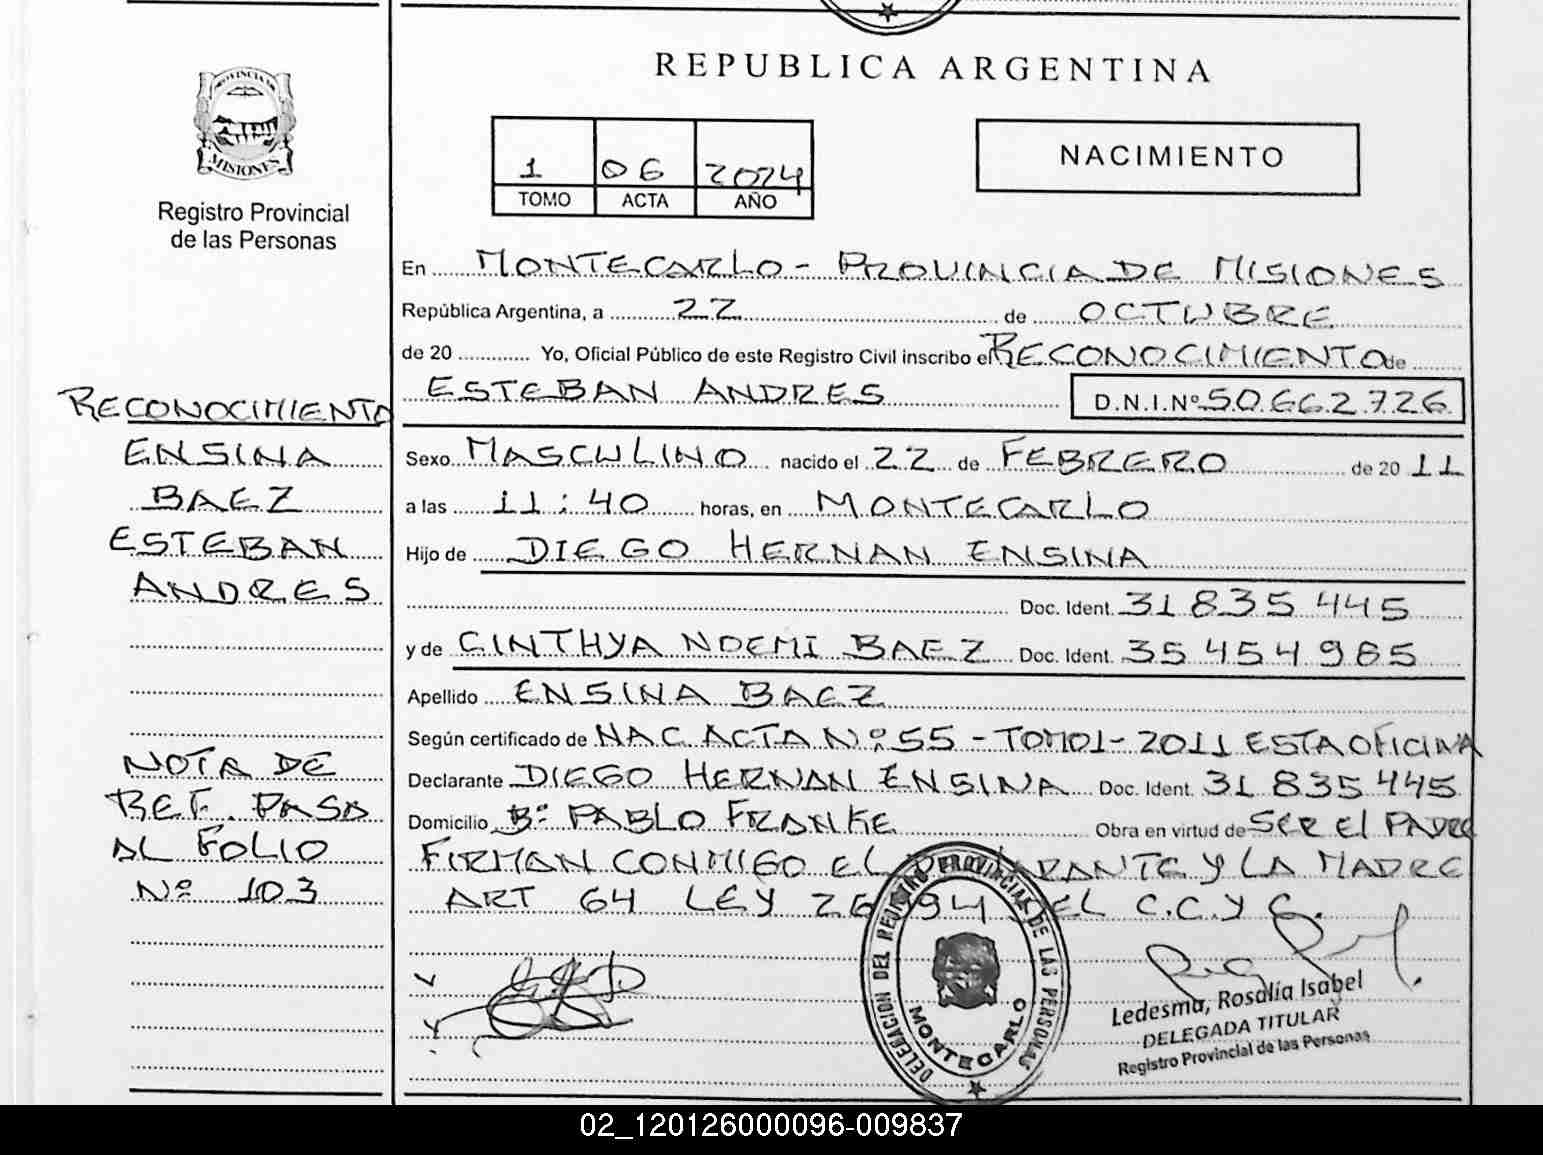 REPUBLICA ARGENTINA
PROVINCIA DE
MISIONES
Registro Provincial
de las Personas
1 06 2024
TOMO ACTA AÑO
NACIMIENTO
En MONTECARLO - PROVINCIA DE MISIONES
República Argentina, a 22 de OCTUBRE
de 20 ............ Yo, Oficial Público de este Registro Civil inscribo el RECONOCIMIENTO de
ESTEBAN ANDRES D.N.I.Nº 50.662.726
RECONOCIMIENTO
ENSINA
BAEZ
ESTEBAN
ANDRES
Sexo MASCULINO nacido el 22 de FEBRERO de 20 11
a las 11:40 horas, en MONTECARLO
Hijo de DIEGO HERNAN ENSINA
Doc. Ident. 31 835 445
y de CINTHYA NOEMI BAEZ Doc. Ident. 35 454 985
Apellido ENSINA BAEZ
Según certificado de NAC ACTA Nº 55 - TOMO 1 - 2011 ESTA OFICINA
Declarante DIEGO HERNAN ENSINA Doc. Ident. 31 835 445
Domicilio Bº PABLO FRANKE Obra en virtud de SER El PADRE
FIRMAN CONMIGO EL RANTE Y LA MADRE
ART 64 LEY 26 94 DEL C.C. Y C.
NOTA DE
REF. PASA
AL FOLIO
Nº 103
DELEGACION DEL REGISTRO PROVINCIAL DE LAS PERSONAS
MONTECARLO
Ledesma, Rosalía Isabel
DELEGADA TITULAR
Registro Provincial de las Personas
02_120126000096-009837